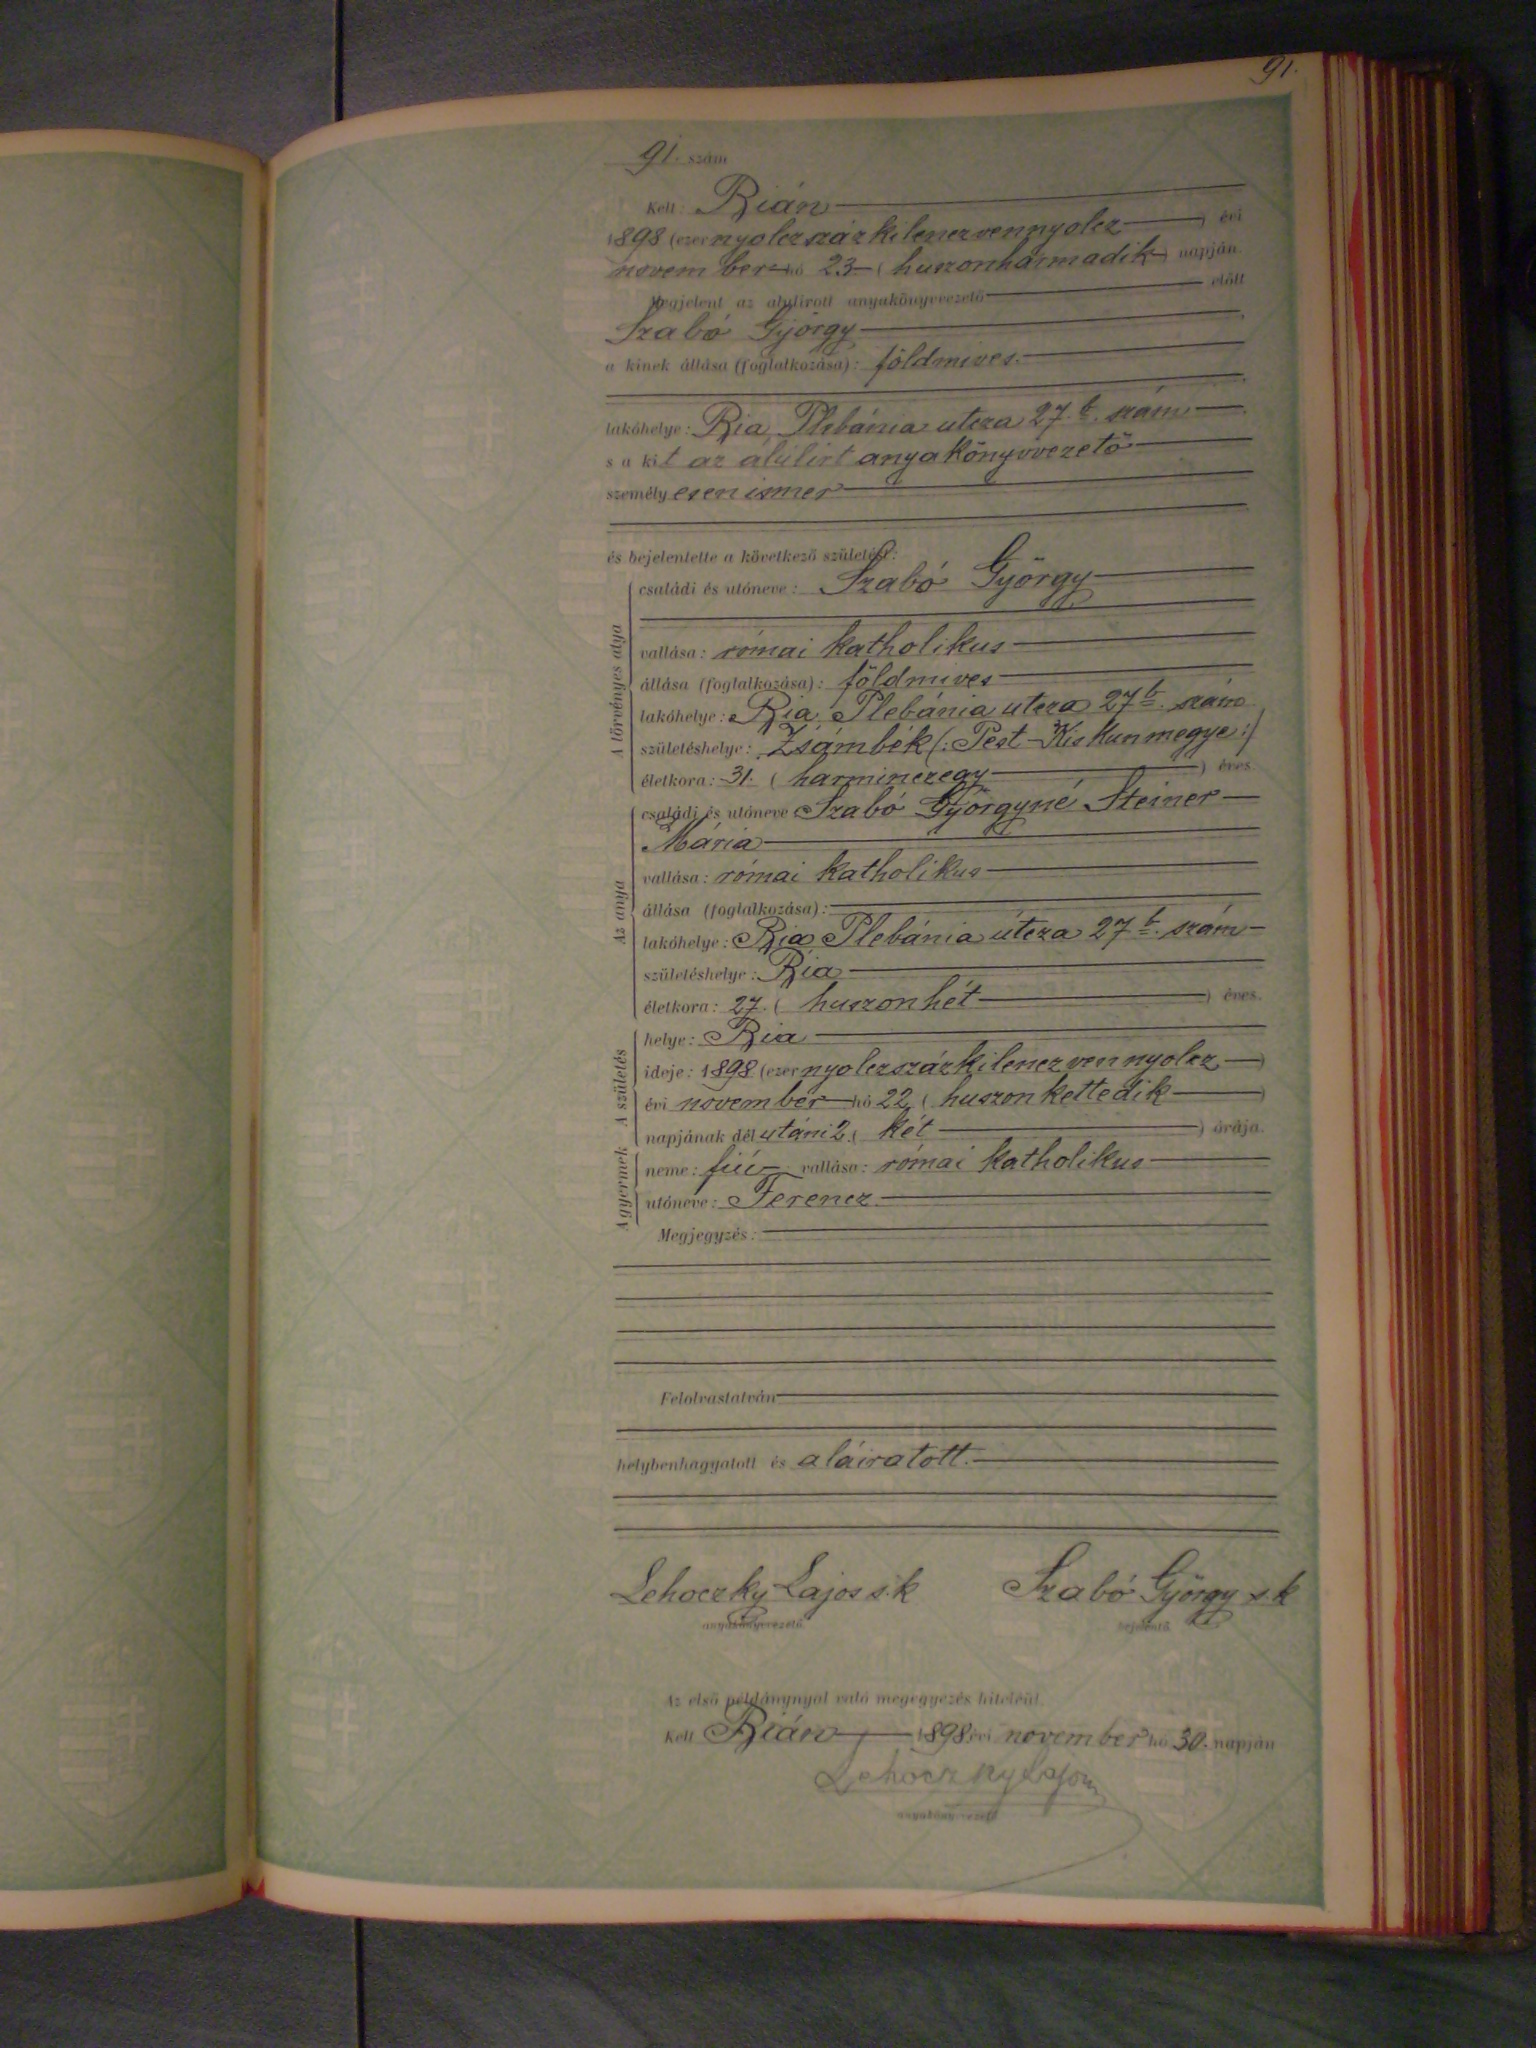 91.
91. szám
Kelt: Bián
1898 (ezernyolczszázkilenczvennyolcz) évi
november hó 23 (huszonharmadik) napján.
Megjelent az alulirott anyakönyvvezető előtt
Szabó György
a kinek állása (foglalkozása): földmives.
lakóhelye: Bia, Plebánia utcza 27 b. szám
s a kit az álulirt anyakönyvvezető
személyesen ismer
és bejelentette a következő születést:
A törvényes atya
családi és utóneve: Szabó György
vallása: római katholikus
állása (foglalkozása): földmives
lakóhelye: Bia, Plebánia utcza 27 b. szám
születéshelye: Zsámbék (: Pest - Kis Kun megye :)
életkora: 31. (harminczegy) éves.
Az anya
családi és utóneve Szabó Györgyné Steiner
Mária
vallása: római katholikus
állása (foglalkozása):
lakóhelye: Bia Plebánia útcza 27 b. szám
születéshelye: Bia
életkora: 27. (huszonhét) éves.
A születés
helye: Bia
ideje: 1898 (ezernyolczszázkilenczvennyolcz)
évi november hó 22 (huszonkettedik)
napjának dél utáni 2 (két) órája.
A gyermek
neme: fiú vallása: római katholikus
utóneve: Ferencz
Megjegyzés:
Felolvastatván
helybenhagyatott és aláiratott.
Lehoczky Lajos s.k Szabó György s.k
anyakönyvvezető. bejelentő.
Az első példánynyal való megegyezés hiteléül.
Kelt Bián 1898 évi november hó 30. napján
Lehoczky Lajos
anyakönyvvezető